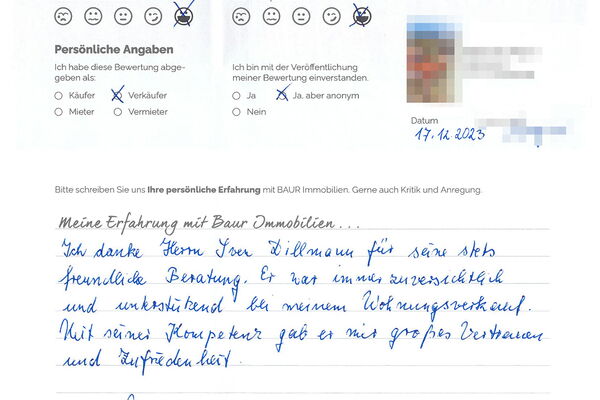 Persönliche Angaben
Ich habe diese Bewertung abge-
geben als:
Käufer Verkäufer
Mieter Vermieter
Ich bin mit der Veröffentlichung
meiner Bewertung einverstanden.
Ja Ja, aber anonym
Nein
Datum
17.12.2023
Bitte schreiben Sie uns Ihre persönliche Erfahrung mit BAUR Immobilien. Gerne auch Kritik und Anregung.
Meine Erfahrung mit Baur Immobilien...
Ich danke Herrn Sven Dillmann für seine stets
freundliche Beratung. Er war immer zuversichtlich
und unterstützend bei meinem Wohnungsverkauf.
Mit seiner Kompetenz gab er mir großes Vertrauen
und Zufriedenheit.